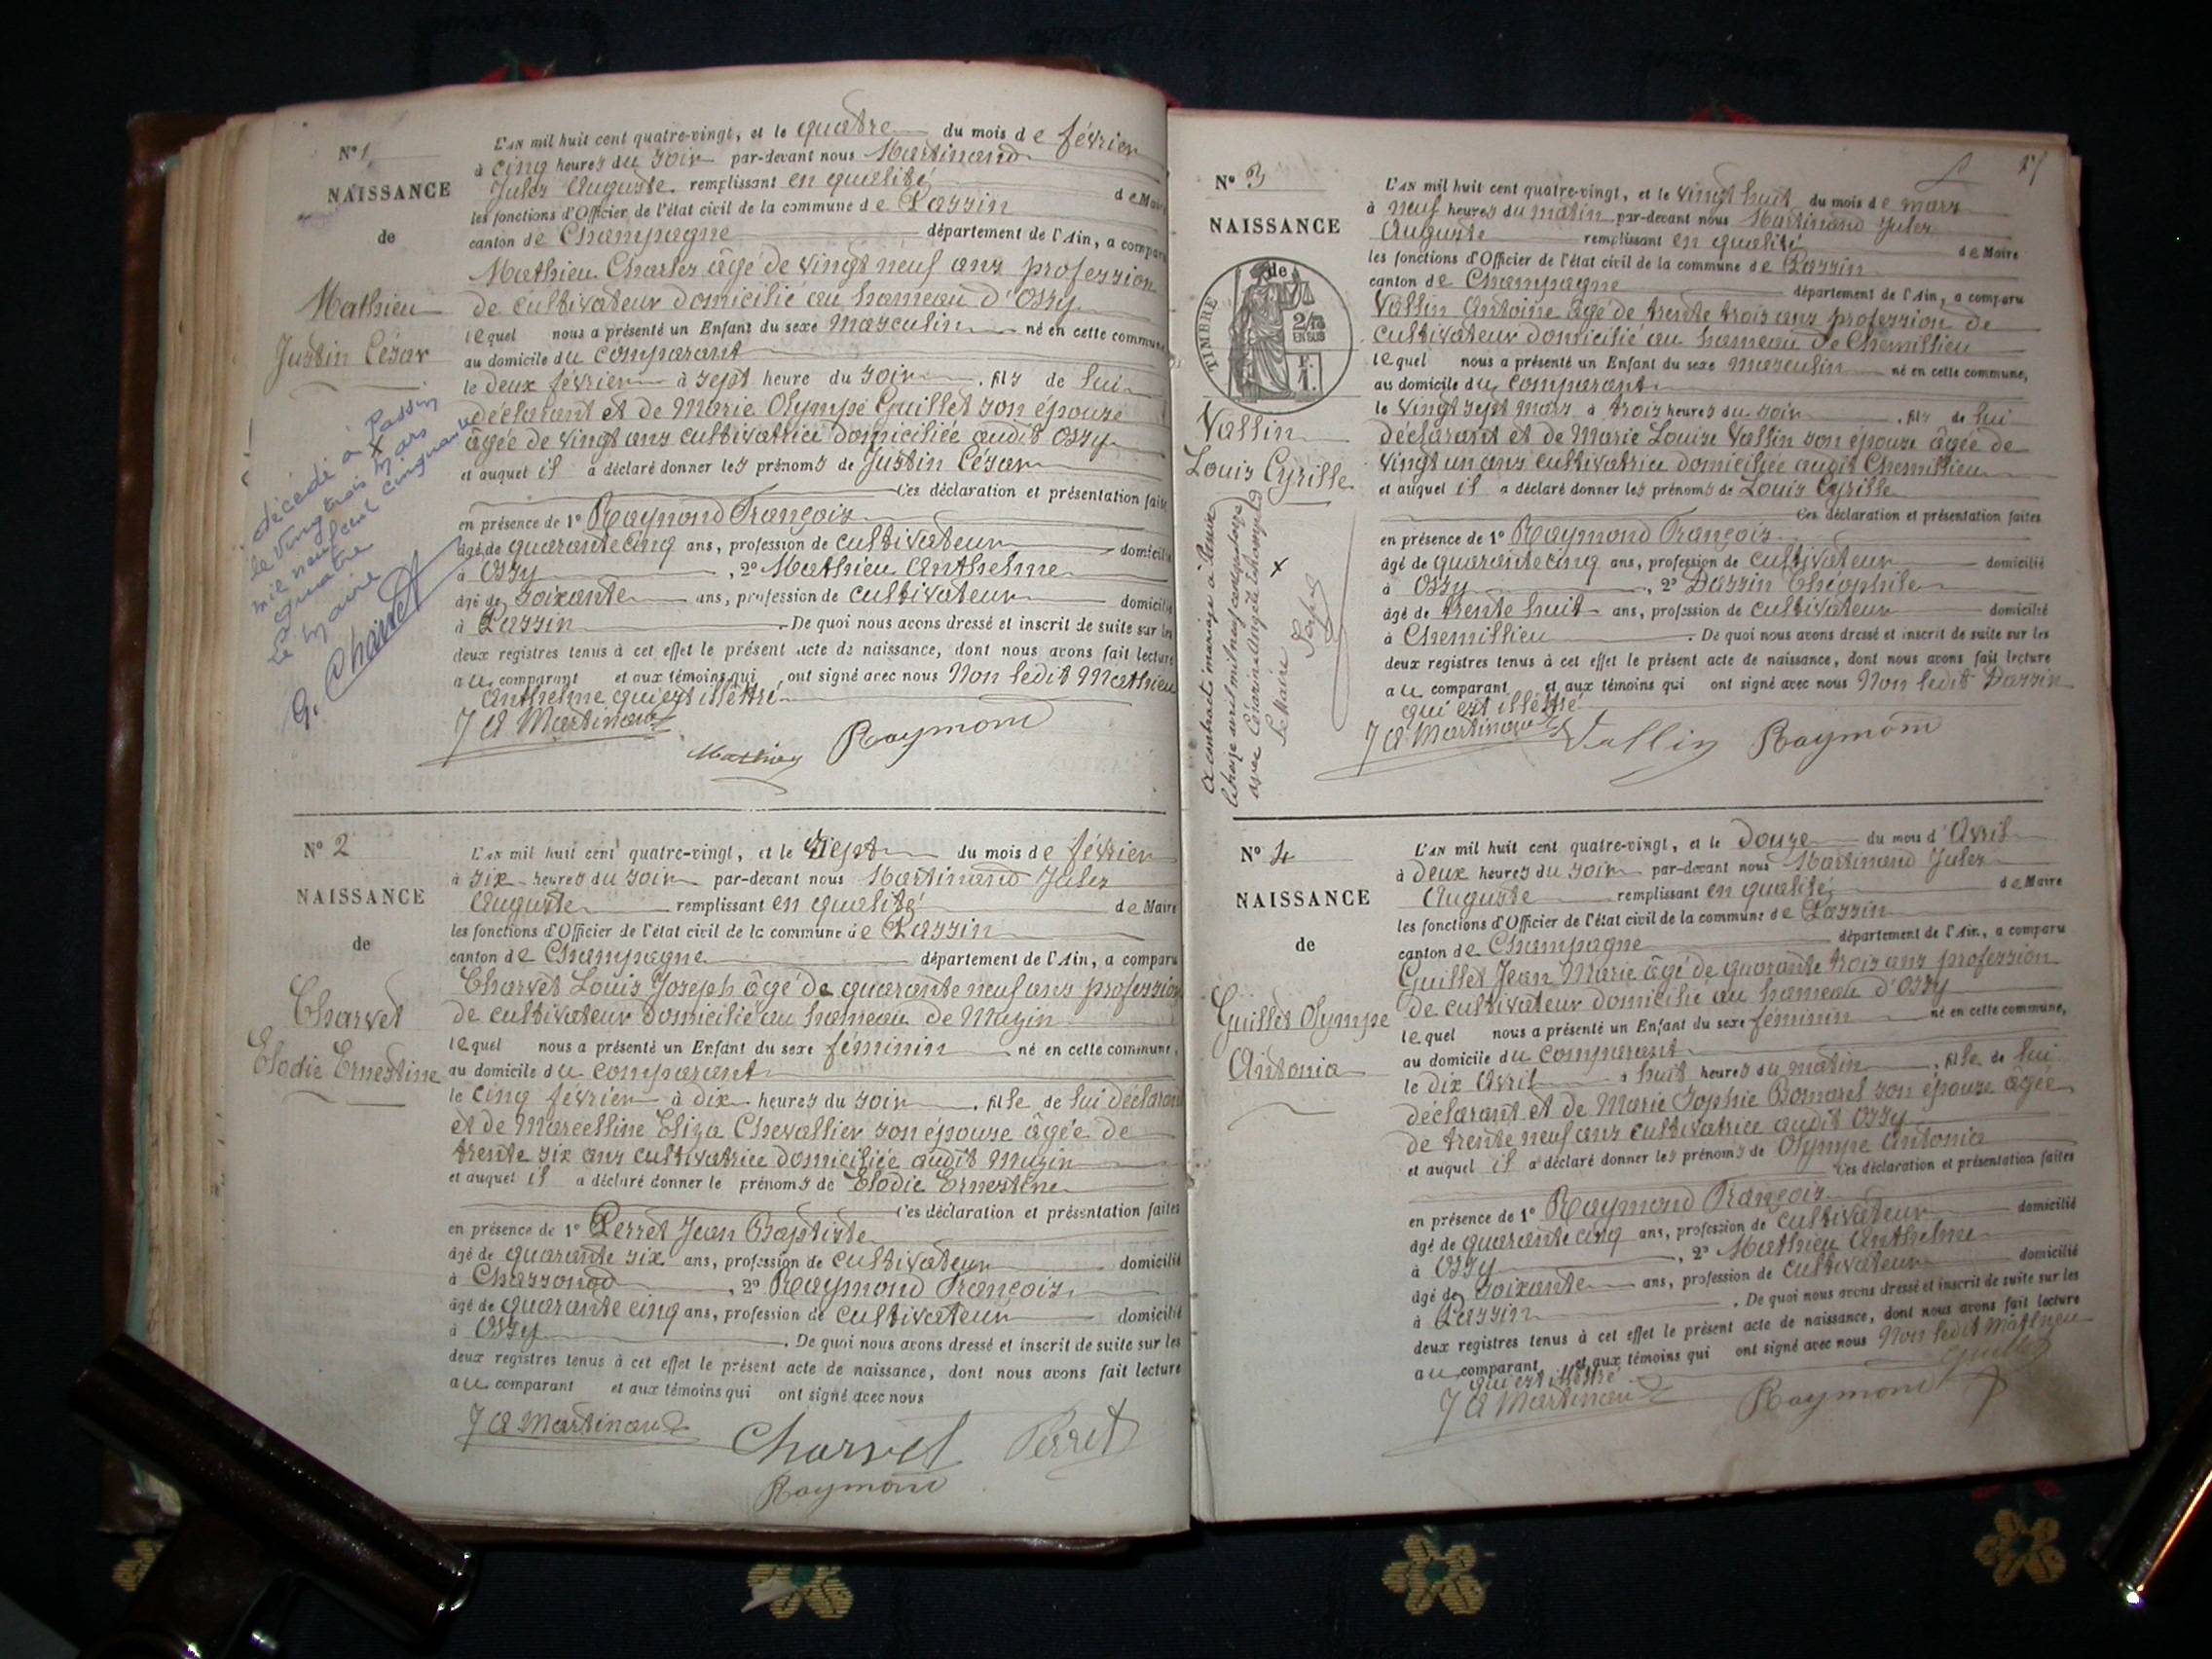 N° 1
NAISSANCE
de
Mathieu
Justin César
décédé à Passin
le vingt trois Mars
mil neuf cent cinquante
quatre
Le Maire
G. Charvet
L'AN mil huit cent quatre-vingt, et le quatre du mois de février
à cinq heures du soir par-devant nous Martinand
Jules Auguste remplissant en qualité de Maire
les fonctions d'Officier de l'état civil de la commune de Passin
canton de Champagne département de l'Ain, a comparu
Mathieu Charles âgé de vingt neuf ans profession
de cultivateur domicilié au hameau d'Ossy
lequel nous a présenté un Enfant du sexe masculin né en cette commune
au domicile du comparant
le deux février à sept heure du soir, fils de lui
déclarant et de Marie Olympe Guillet son épouse
âgée de vingt ans cultivatrice domiciliée audit Ossy
et auquel il a déclaré donner les prénoms de Justin César
Ces déclaration et présentation faites
en présence de 1° Raymond François
âgé de quarante cinq ans, profession de cultivateur domicilié
à Ossy, 2° Mathieu Anthelme
âgé de soixante ans, profession de cultivateur domicilié
à Passin. De quoi nous avons dressé et inscrit de suite sur les
deux registres tenus à cet effet le présent acte de naissance, dont nous avons fait lecture
au comparant et aux témoins qui ont signé avec nous Non ledit Mathieu
Anthelme qui est illétré
J A Martinand
Mathieu Raymond
N° 2
NAISSANCE
de
Charvet
Elodie Ernestine
L'AN mil huit cent quatre-vingt, et le sept du mois de février
à six heures du soir par-devant nous Martinand Jules
Auguste remplissant en qualité de Maire
les fonctions d'Officier de l'état civil de la commune de Passin
canton de Champagne département de l'Ain, a comparu
Charvet Louis Joseph âgé de quarante neuf ans profession
de cultivateur domicilié au hameau de Muzin
lequel nous a présenté un Enfant du sexe féminin né en cette commune,
au domicile du comparant
le cinq février à dix heures du soir, fille de lui déclarant
et de Marcelline Eliza Chevallier son épouse âgée de
trente six ans cultivatrice domiciliée audit Muzin
et auquel il a déclaré donner le prénoms de Elodie Ernestine
Ces déclaration et présentation faites
en présence de 1° Perret Jean Baptiste
âgé de quarante six ans, profession de cultivateur domicilié
à Chassonod, 2° Raymond François
âgé de quarante cinq ans, profession de cultivateur domicilié
à Ossy. De quoi nous avons dressé et inscrit de suite sur les
deux registres tenus à cet effet le présent acte de naissance, dont nous avons fait lecture
au comparant et aux témoins qui ont signé avec nous
J A Martinand Charvet Perret
Raymond
N° 3
NAISSANCE
de
TIMBRE
2/10
EN SUS
F.
1.
Vallin
Louis Cyrille
a contracté mariage à
avril mil neuf cent
avec Césarine Angèle
Le Maire
L'AN mil huit cent quatre-vingt, et le vingt huit du mois de mars
à neuf heures du matin par-devant nous Martinand Jules
Auguste remplissant en qualité de Maire
les fonctions d'Officier de l'état civil de la commune de Passin
canton de Champagne département de l'Ain, a comparu
Vallin Antoine âgé de trente trois ans profession de
cultivateur domicilié au hameau de Chemillieu
lequel nous a présenté un Enfant du sexe masculin né en cette commune,
au domicile du comparant
le vingt sept mars à trois heures du soir, fils de lui
déclarant et de Marie Louise Vallin son épouse âgée de
vingt un ans cultivatrice domiciliée audit Chemillieu
et auquel il a déclaré donner les prénoms de Louis Cyrille
Ces déclaration et présentation faites
en présence de 1° Raymond François
âgé de quarante cinq ans, profession de cultivateur domicilié
à Ossy, 2° Dassin Théophile
âgé de trente huit ans, profession de cultivateur domicilié
à Chemillieu. De quoi nous avons dressé et inscrit de suite sur les
deux registres tenus à cet effet le présent acte de naissance, dont nous avons fait lecture
au comparant et aux témoins qui ont signé avec nous Non ledit Dassin
qui est illétré
J A Martinand Vallin Raymond
N° 4
NAISSANCE
de
Guillet Olympe
Antonia
L'AN mil huit cent quatre-vingt, et le douze du mois d'Avril
à deux heures du soir par-devant nous Martinand Jules
Auguste remplissant en qualité de Maire
les fonctions d'Officier de l'état civil de la commune de Passin
canton de Champagne département de l'Ain, a comparu
Guillet Jean Marie âgé de quarante trois ans profession
de cultivateur domicilié au hameau d'Ossy
lequel nous a présenté un Enfant du sexe féminin né en cette commune,
au domicile du comparant
le dix Avril à huit heures du matin, fille de lui
déclarant et de Marie Sophie Bomarel son épouse âgée
de trente neuf ans cultivatrice audit Ossy
et auquel il a déclaré donner les prénoms de Olympe Antonia
Ces déclaration et présentation faites
en présence de 1° Raymond François
âgé de quarante cinq ans, profession de cultivateur domicilié
à Ossy, 2° Mathieu Anthelme
âgé de soixante ans, profession de cultivateur domicilié
à Passin. De quoi nous avons dressé et inscrit de suite sur les
deux registres tenus à cet effet le présent acte de naissance, dont nous avons fait lecture
au comparant et aux témoins qui ont signé avec nous Non ledit Mathieu
qui est illétré Guillet
J A Martinand Raymond